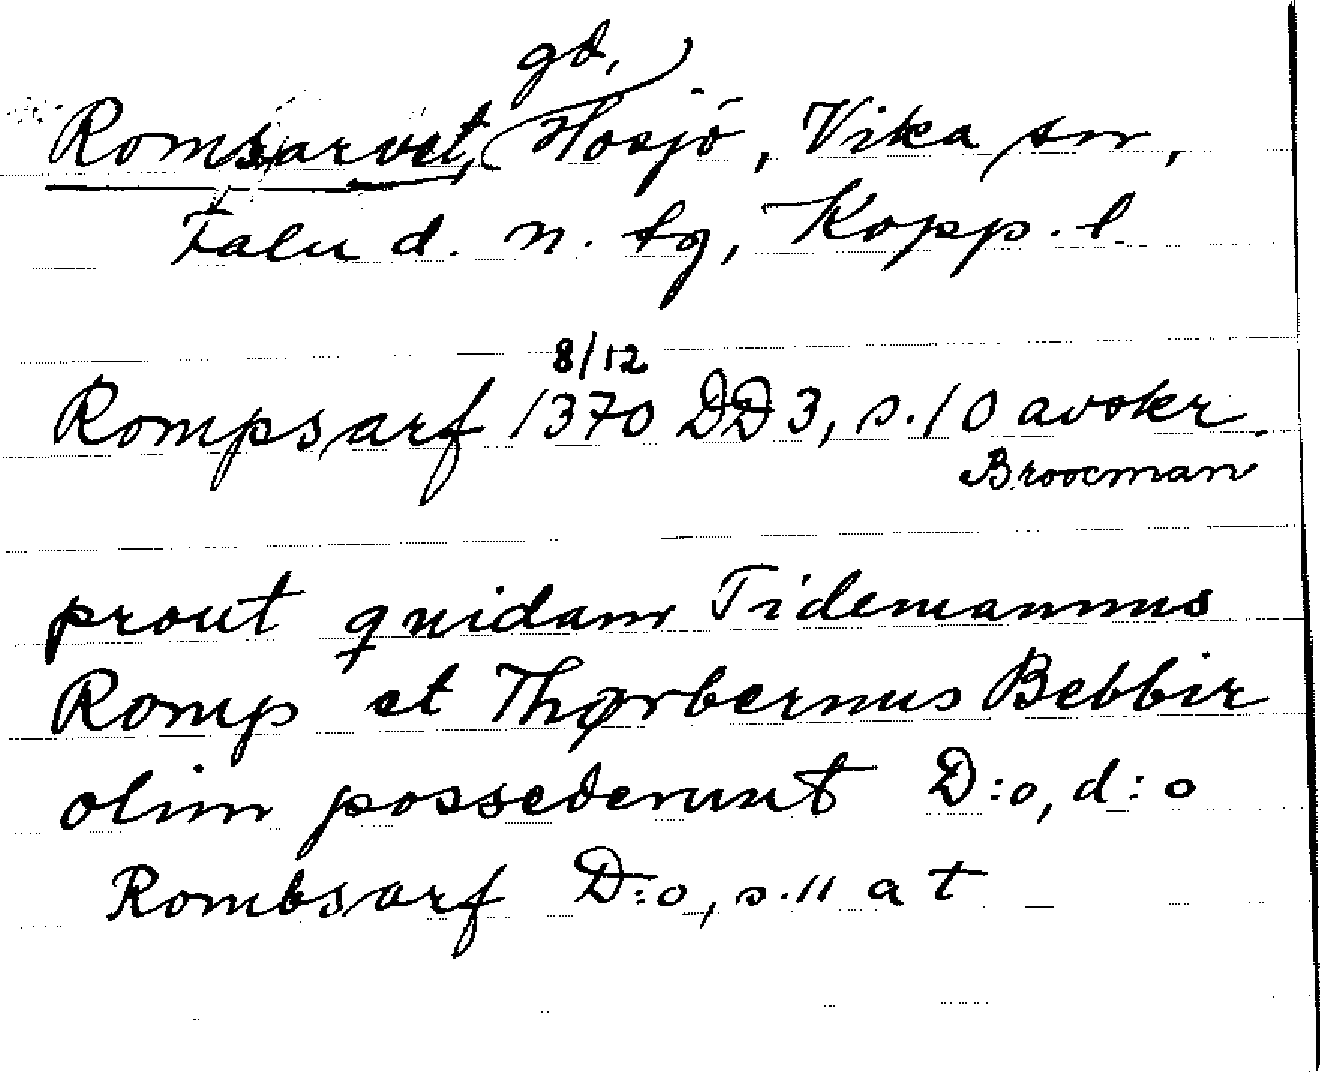 gd,
Romsarvet, Hosjö, Vika sn,
Falu d. n. tg, Kopp. l.
8/12
Rompsarf 1370 DD 3, s. 10 avskr.
Broocman
prout quidam Tidemannus
Romp et Thørbernus Bebbir
olim possederunt D:o, d:o
Rombsarf D:o, s. 11 a t